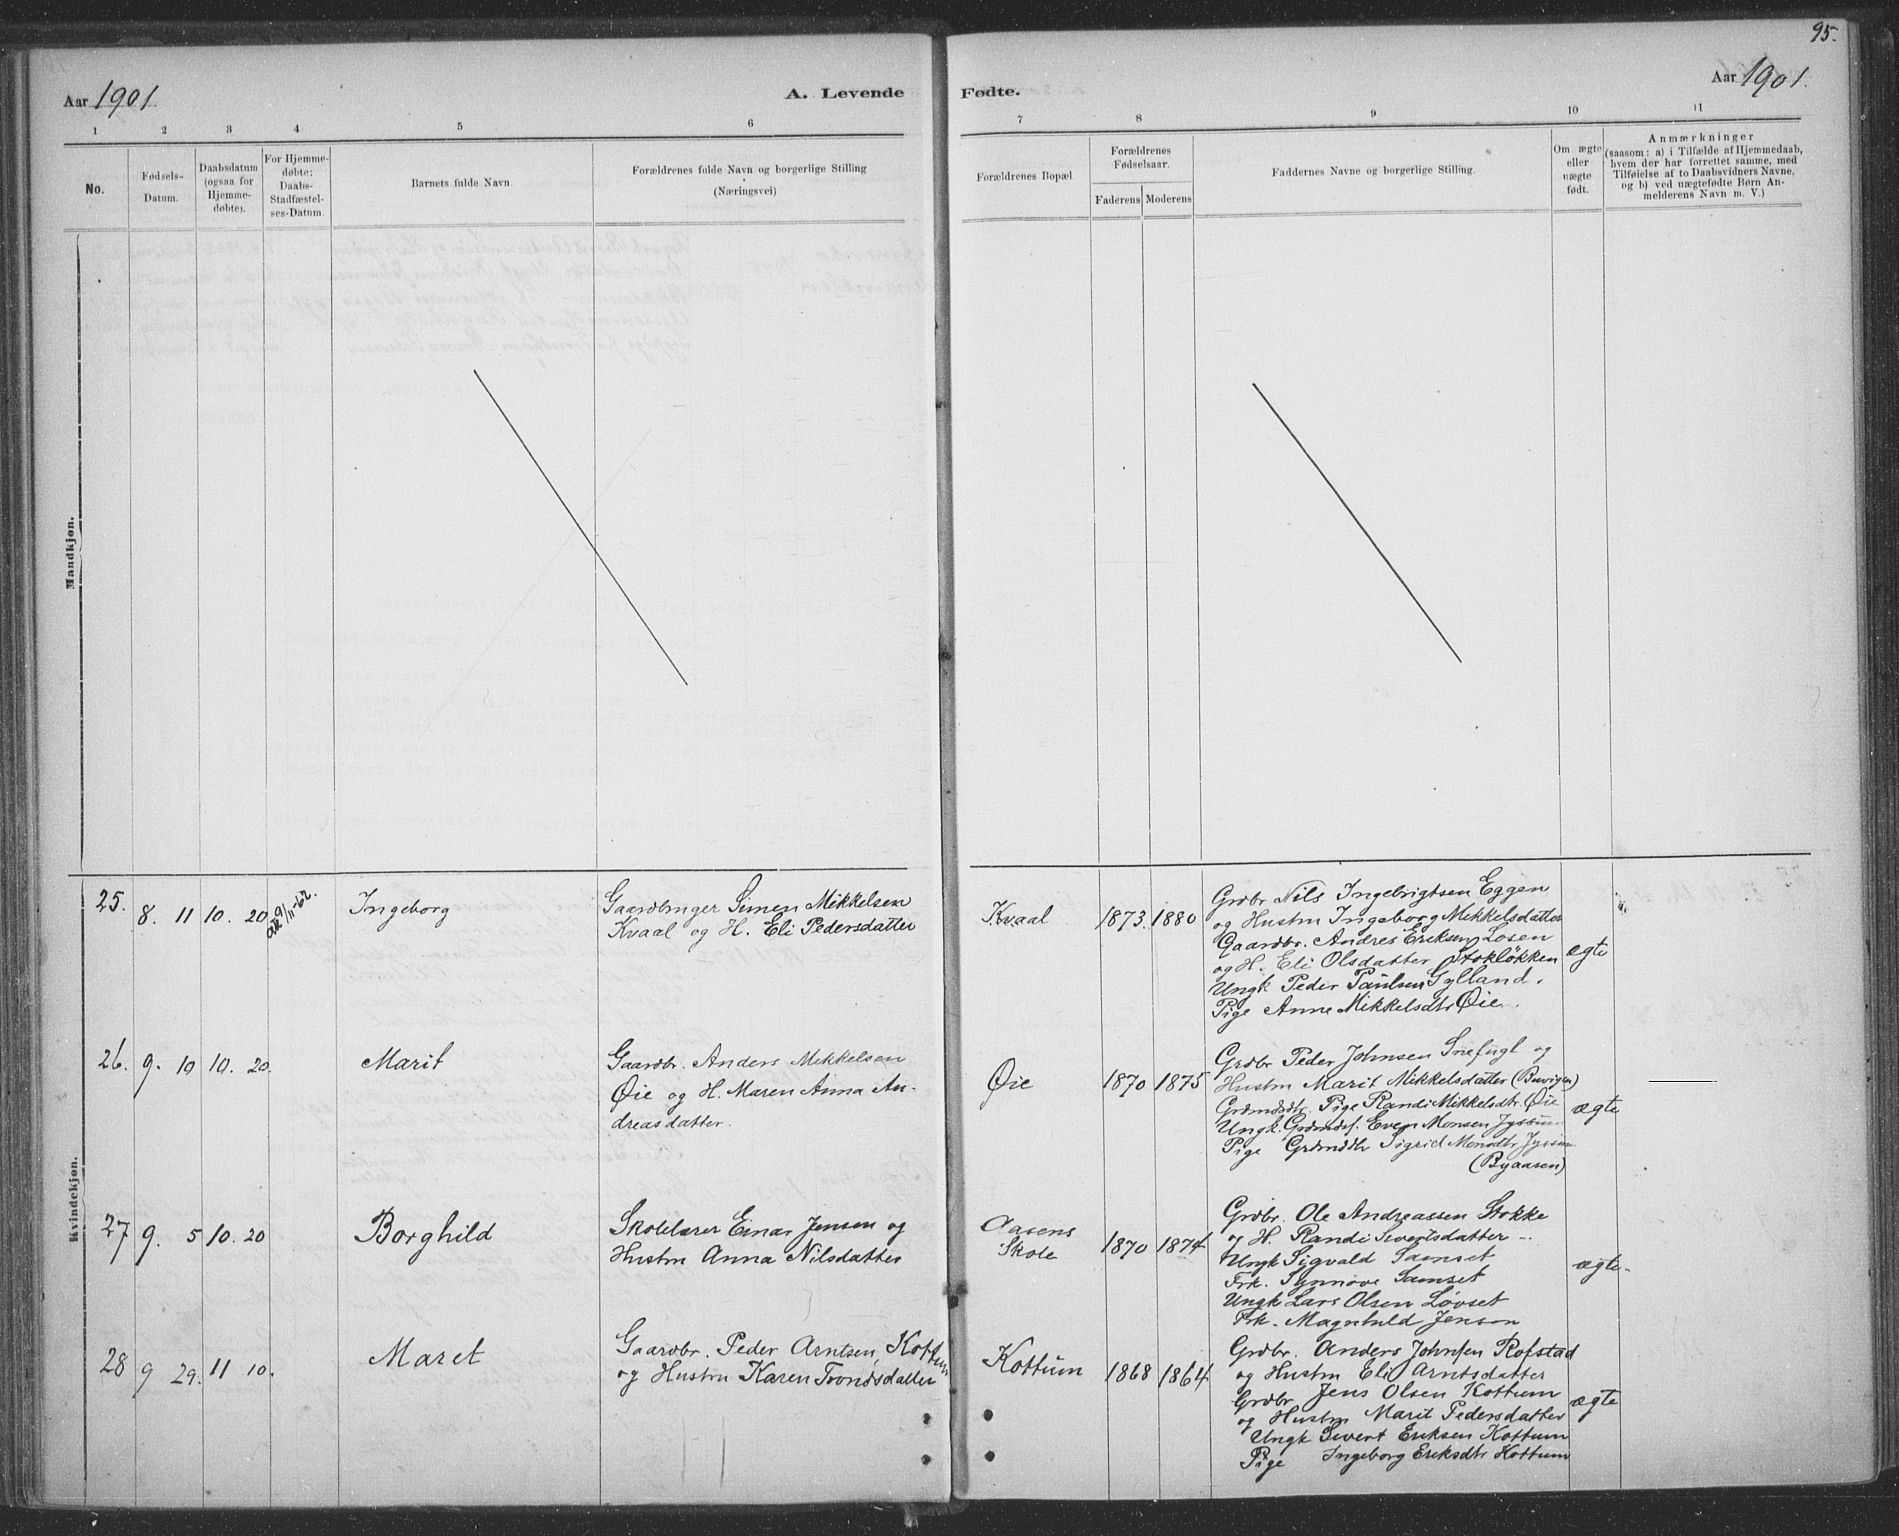 95.
Aar 1901.
A. Levende Fødte.
Aar 1901.
1 2 3 4 5 6 7 8 9 10 11
No.
Fødsels-
Datum.
Daabsdatum
(ogsaa for
Hjemme-
døbte).
For Hjemme-
døbte:
Daabs-
Stadfæstel-
ses-Datum.
Barnets fulde Navn
Forældrenes fulde Navn og borgerlige Stilling
(Næringsvei)
Forældrenes Bopæl.
Forældrenes
Fødselsaar.
Faderens Moderens
Faddernes Navne og borgerlige Stilling.
Om ægte
eller
uægte
født.
Anmærkninger
(saasom: a) i Tilfælde af Hjemmedaab,
hvem der har forrettet samme, med
Tilføielse af to Daabsvidners Navne,
og b) ved uægtefødte Børn An-
melderens Navn m. V.)
Mandkjøn.
Kvindekjøn.
25. 8. 11 10. 20 att 9/11-62. Ingeborg
Gaardbruger Simen Mikkelsen
Kvaal og H. Eli Pedersdatter
Kvaal 1873. 1880
Grdbr Nils Ingebrigtsen Eggen
og Hustru Ingeborg Mikkelsdatter
Gaardbr. Andres Eriksen Losen
og H. Eli Olsdatter Stokløkken
Ungk Peder Paulsen Gylland.
Pige Anne Mikkelsdtr Øie.
ægte
26. 9. 10 10. 20. Marit
Gaardbr. Anders Mikkelsen
Øie og H. Maren Anna An-
dreasdatter.
Øie 1870 1875
Grdbr Peder Johnsen Snefugl og
Hustru Marit Mikkelsdatter (Buvigen)
Grdmdsdtr. Pige Randi Mikkelsdtr. Øie
Ungk. Grdmds. Even Monsen Jyssum
Pige Grdmdtr Sigrid Monsdtr Jyssum
(Byaasen)
ægte
27 9. 5 10. 20 Borghild
Skolelærer Einar Jensen og
Hustru Anna Nilsdatter
Aasens
Skole
1870 1874
Grdbr. Ole Andreassen Stokke
og H. Randi Sivertsdatter -..
Ungk Sigvald Samset
Frk. Synnøve Samset
Ungk Lars Olsen Løvset
Frk. Magnhild Jenson
ægte.
28 9 29. 11 10. Maret
Gaardbr. Peder Arntsen, Kottum
og Hustru Karen Trondsdatter
Kottum 1868 1864
Grdbr. Anders Johnsen Rofstad
og Hustru Eli Arntsdatter
Grdbr. Jens Olsen Kottum
og Hustru Marit Pedersdatter
Ungk Sivert Eriksen Kottum
Pige Ingeborg Eriksdtr Kottum
ægte